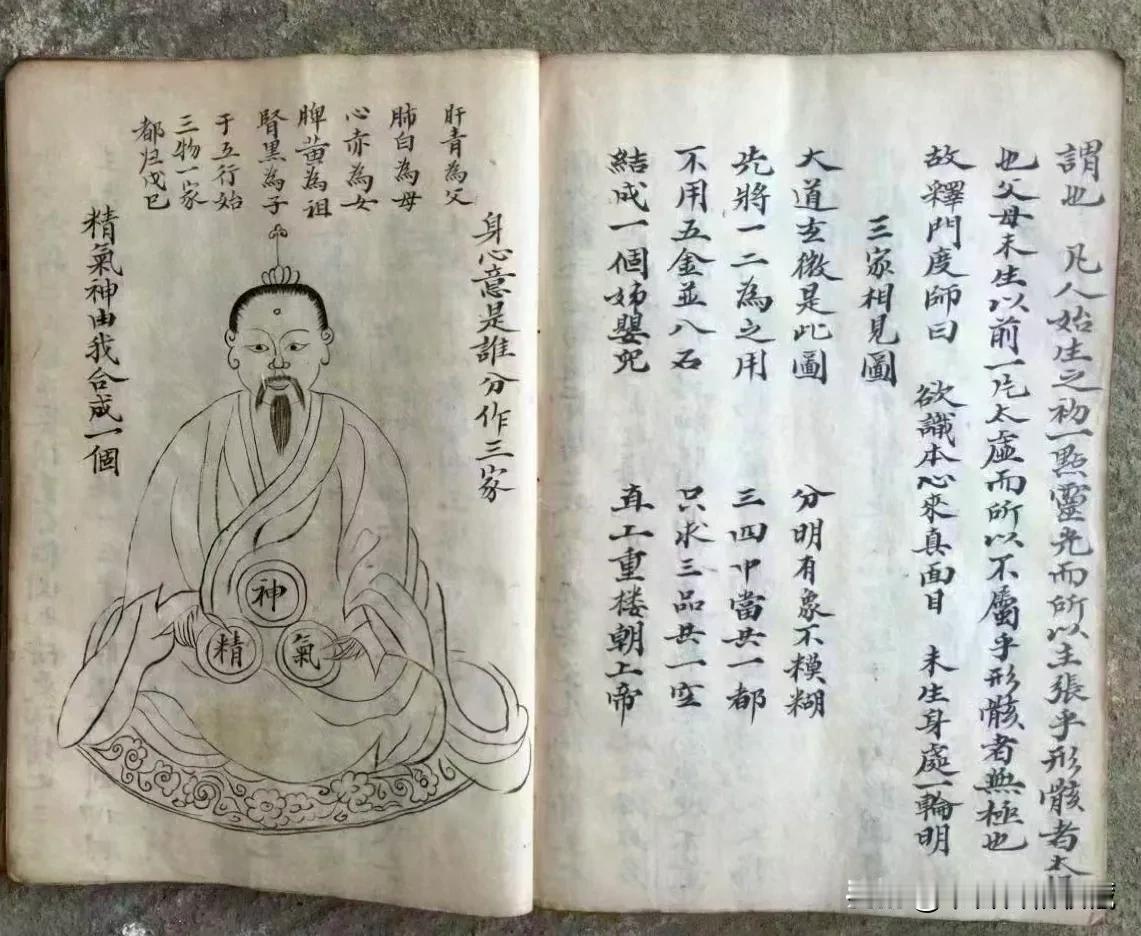 謂也 凡人始生之初一點靈光而所以主張乎形骸者太
也父母未生以前一片太虛而所以不屬乎形骸者無極也
故釋門度師曰 欲識本心來真面目 未生身處一輪明
三家相見圖
大道玄微是此圖 分明有象不糢糊
先將一二為之用 三四中當共一都
不用五金並八石 只求三品共一空
結成一個姊嬰兒 直上重楼朝上帝
身心意是誰分作三家
肝青為父
肺白為母
心赤為女
脾黄為祖
腎黑為子
于五行始
三物一家
都归戊己
精氣神由我合成一個
神
精
氣